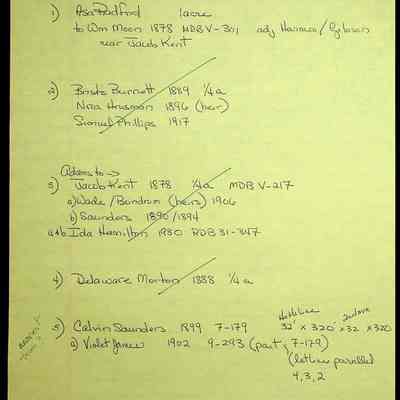 1) Asa Radford 1 acre
to Wm Moon 1878 MDB V-301 adj Harness / Gibson
near Jacob Kent
2) Bristo Burnett 1889 1/4 a
Nora 1896 (heir)
Samuel Phillips 1917
Adams to →
3) Jacob Kent 1878 1/4 a MDB V-217
a) Wade / Bondram (heirs) 1906
b) Saunders 1890/1894
a+b Ida Hamilton 1930 RDB 31-347
4) Delaware Morton 1888 1/4 a
5) Calvin Saunders 1899 7-179 32' x 320' x 32 x 320
a) Violet James 1902 9-293 (part of 7-179)
(lot line parallel
4, 3, 2